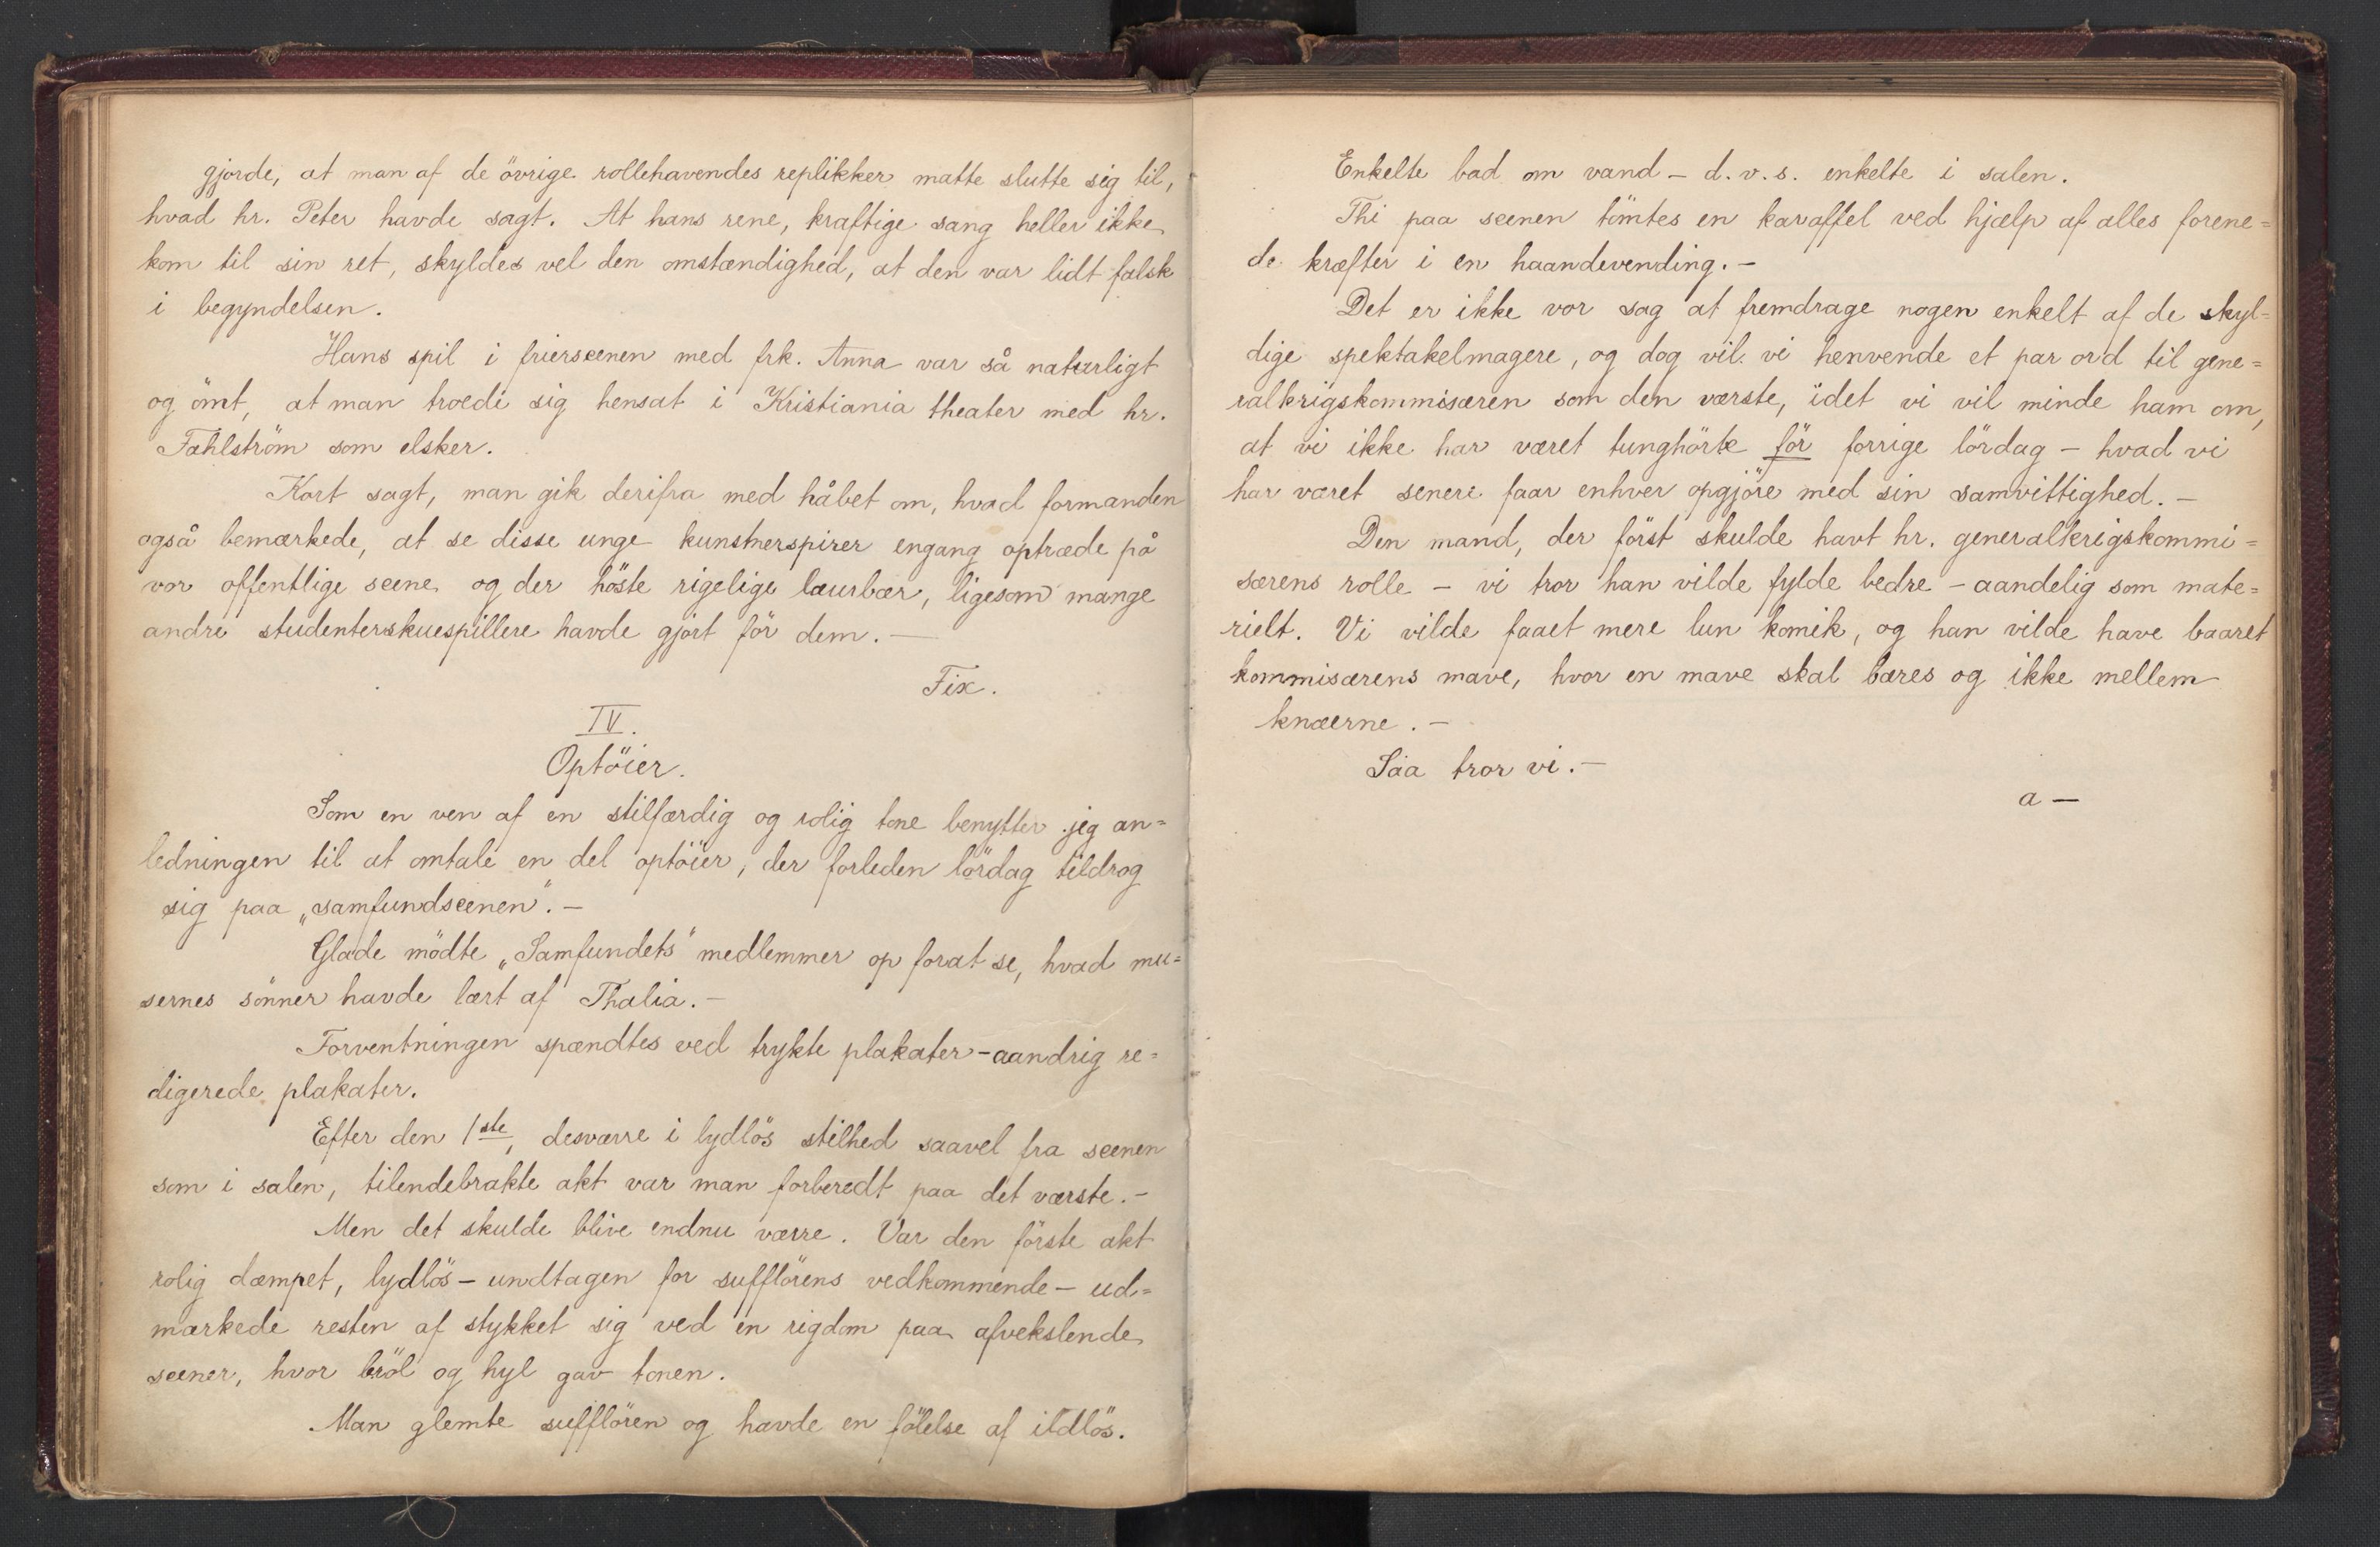 gjorde, at man af de övrige rollehavendes replikker matte slutte sig til,
hvad hr. Peter havde sagt. At hans rene, kraftige sang heller ikke
kom til sin ret, skyldes vel den omstændighed, at den var lidt falsk
i begyndelsen.
Hans spil i frierscenen med frk. Anna var så naturligt
og ömt, at man troede sig hensat i Kristiania theater med hr.
Fahlström som elsker.
Kort sagt, man gik derifra med håbet om, hvad formanden
også bemærkede, at se disse unge kunstnerspirer engang optræde på
vor offentlige scene og der höste rigelige laurbær, ligesom mange
andre studenterskuespillere havde gjort för dem. —
Fix.
IV.
Optöier.
Som en ven af en stilfærdig og rolig tone benytter jeg an=
ledningen til at omtale en del optöier, der forleden lördag tildrog
sig paa „samfundscenen". —
Glade mödte „Samfundets" medlemmer op forat se, hvad mu=
sernes sönner havde lært af Thalia. —
Forventningen spændtes ved trykte plakater - aandrig re=
digerede plakater.
Efter den 1ste, desværre i lydlös stilhed saavel fra scenen
som i salen, tilendebrakte akt var man forberedt paa det værste. —
Men det skulde blive endnu værre. Var den förste akt
rolig dæmpet, lydlös — undtagen for sufflörens vedkommende — ud=
mærkede resten af stykket sig ved en rigdom paa afvekslende
scener, hvor bröl og hyl gav tonen.
Man glemte sufflören og havde en fölelse af ildlös.
Enkelte bad om vand — d.v.s. enkelte i salen.
Thi paa scenen tömtes en karaffel ved hjælp af alles forene=
de kræfter i en haandevending. —
Det er ikke vor sag at fremdrage nogen enkelt af de skyl=
dige spektakelmagere, og dog vil vi henvende et par ord til gene=
ralkrigskommisæren som den værste, idet vi vil minde ham om,
at vi ikke har været tunghörte för forrige lördag — hvad vi
har været senere faar enhver opgjöre med sin samvittighed. —
Den mand, der först skulde havt hr. generalkrigskommi=
særens rolle — vi tror han vilde fylde bedre — aandelig som mate=
rielt. Vi vilde faaet mere lun komik, og han vilde have baaret
kommisærens mave, hvor en mave skal bæres og ikke mellem
knæerne. —
Saa tror vi. —
a —